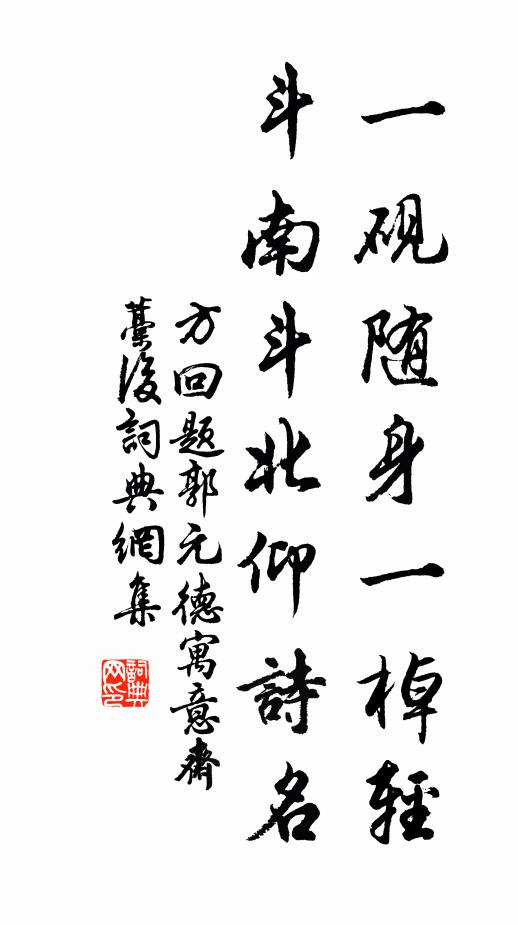 一砚随身一棹輕
斗南斗北仰詩名
方回题郭元德寓意齋
藁後詞典網集
詞典网印